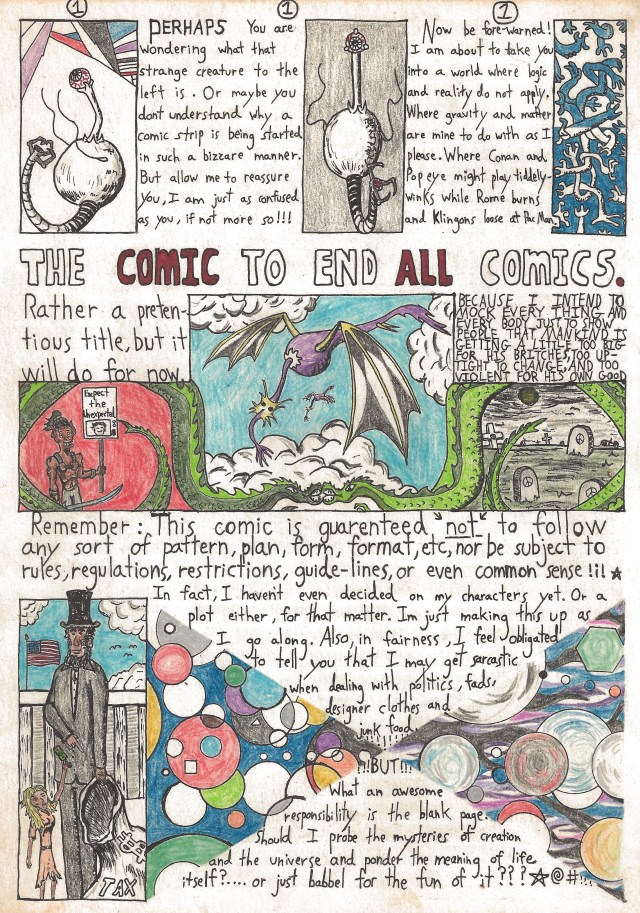 1
1
1
PERHAPS You are
wondering what that
strange creature to the
left is. Or maybe you
dont understand why a
comic strip is being started
in such a bizzare manner.
But allow me to reassure
you, I am just as confused
as you, if not more so!!!
Now be fore-warned!
I am about to take you
into a world where logic
and reality do not apply.
Where gravity and matter
are mine to do with as I
please. Where Conan and
Popeye might play tiddely-
winks while Rome burns
and Klingons loose at Pac Man.
THE COMIC TO END ALL COMICS.
Rather a preten-
tious title, but it
will do for now.
BECAUSE I INTEND TO
MOCK EVERY THING AND
EVERY BODY JUST TO SHOW
PEOPLE THAT MANKIND IS
GETTING A LITTLE TOO BIG
FOR HIS BRITCHES, TOO UP-
TIGHT TO CHANGE, AND TOO
VIOLENT FOR HIS OWN GOOD
Expect
the
Unexpected
Remember: This comic is guarenteed "not" to follow
any sort of pattern, plan, form, format, etc, nor be subject to
rules, regulations, restrictions, guide-lines, or even common sense!i!★
In fact, I havent even decided on my characters yet. Or a
plot either, for that matter. Im just making this up as
I go along. Also, in fairness, I feel obligated
to tell you that I may get sarcastic
when dealing with politics, fads,
designer clothes and
junk food
!!!!!
!!!BUT!!!
What an awesome
responsibility is the blank page.
Should I probe the mysteries of creation
and the universe and ponder the meaning of life
itself?.... or just babbel for the fun of it???☆@#!!...
TAX